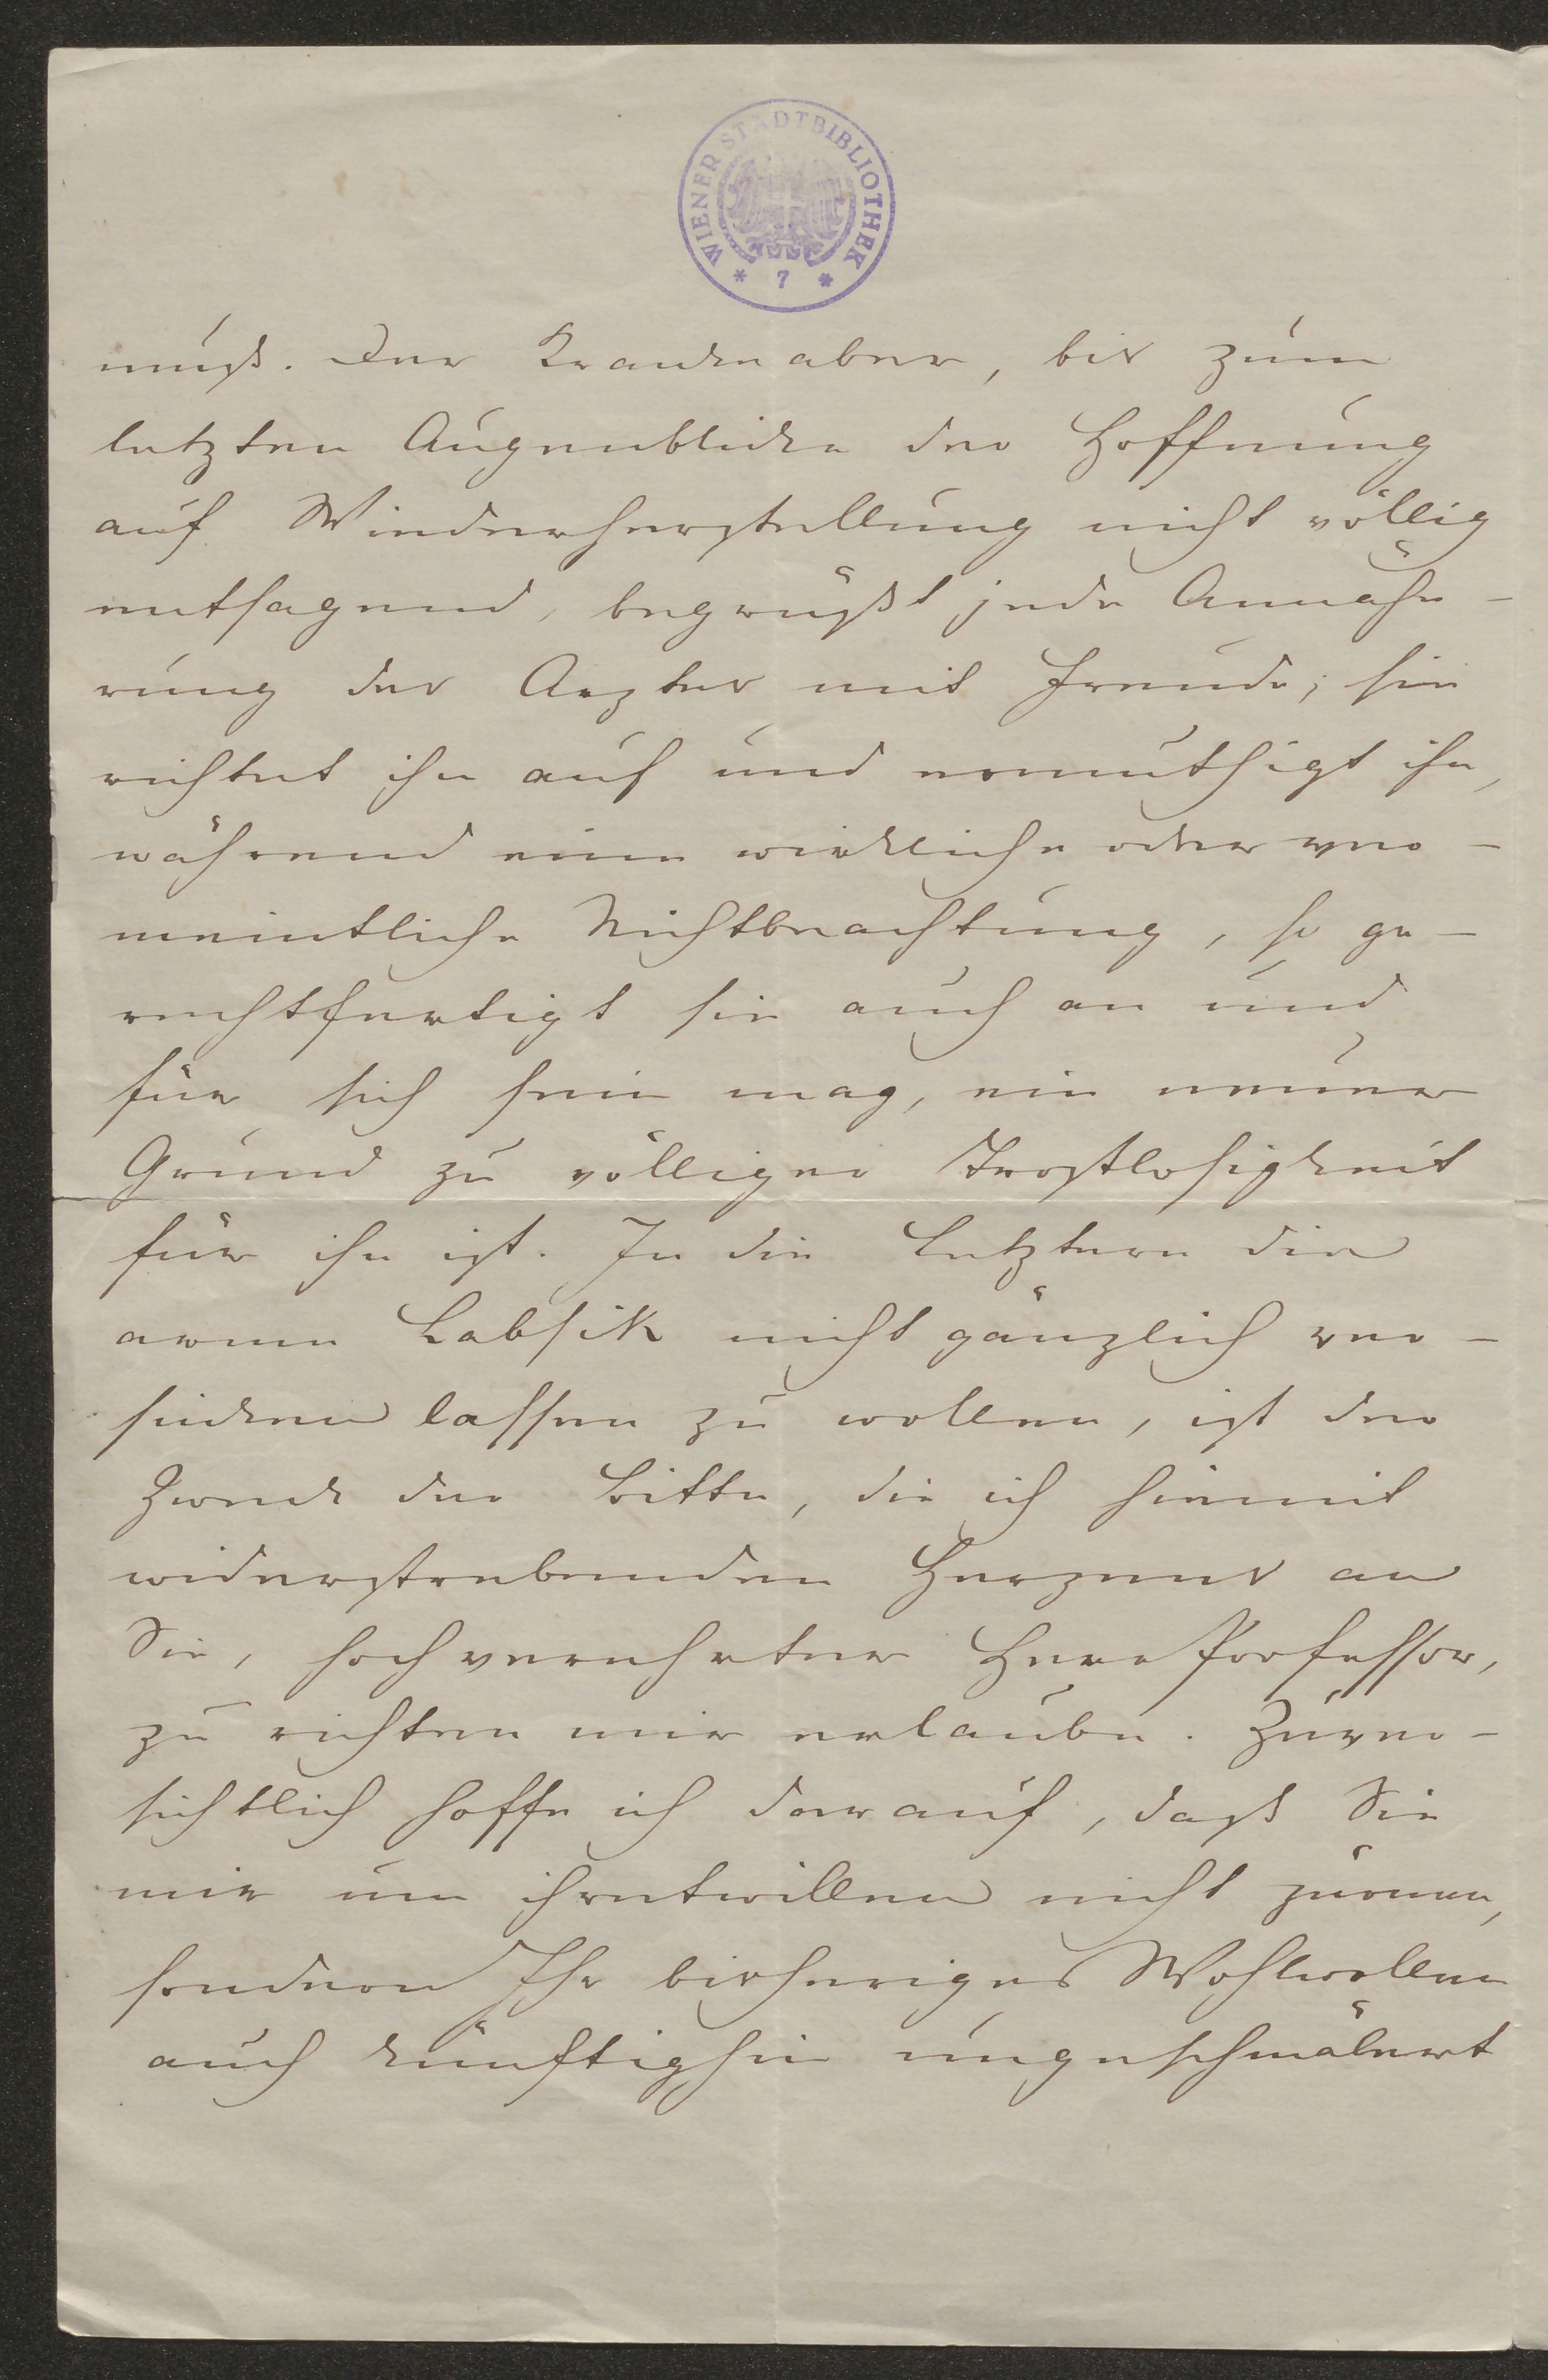 WIENER STADTBIBLIOTHEK
* 7 *
muß. Der Kranke aber, bis zum
letzten Augenblicke der Hoffnung
auf Wiederherstellung nicht völlig
entsagend, begrüßt jede Annähe-
rung des Arztes mit Freude; sie
richtet ihn auf und ermuthigt ihn,
während eine wirkliche oder ver-
meintliche Nichtbeachtung, so ge-
rechtfertigt sie auch an und
für sich sein mag, ein neuer
Grund zu völliger Trostlosigkeit
für ihn ist. In die Letztere die
arme Labsik nicht gänzlich ver-
sinken lassen zu wollen, ist der
Zweck der Bitte, die ich hiemit
widerstrebenden Herzens an
Sie, hochverehrter Herr Professor,
zu richten mir erlaube. Zuver-
sichtlich hoffe ich darauf, daß Sie
mir um ihretwillen nicht zürnen,
sondern Ihr bisheriges Wohlwollen
auch künftighin ungeschmälert